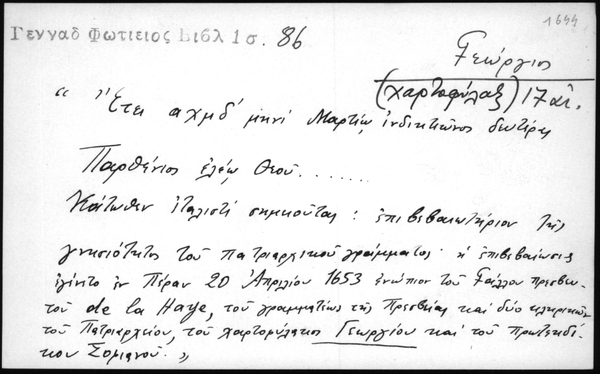 1644
Γενναδ Φωτιειος Βιβλ 1 σ. 86
Γεώργιος
(χαρτοφύλαξ) 17 αἰ.
"Ἔτει αχμδ' μηνί Μαρτίῳ, ἰνδικτιῶνος δευτέρας
Παρθένιος ἐλέῳ Θεοῦ.......
Κάτωθεν ἰταλιστί σημειοῦται: ἐπιβεβαιωτήριον τῆς
γνησιότητος τοῦ πατριαρχικοῦ γράμματος. ἡ ἐπιβεβαίωσις
ἐγένετο ἐν Πέραν 20 Ἀπριλίου 1653 ἐνώπιον τοῦ Γάλλου πρεσβευ-
τοῦ de la Haye, τοῦ γραμματέως τῆς Πρεσβείας καί δύο κληρικῶν
τοῦ Πατριαρχείου, τοῦ χαρτοφύλακος Γεωργίου καί τοῦ πρωτεκδί-
κου Σομιανοῦ."